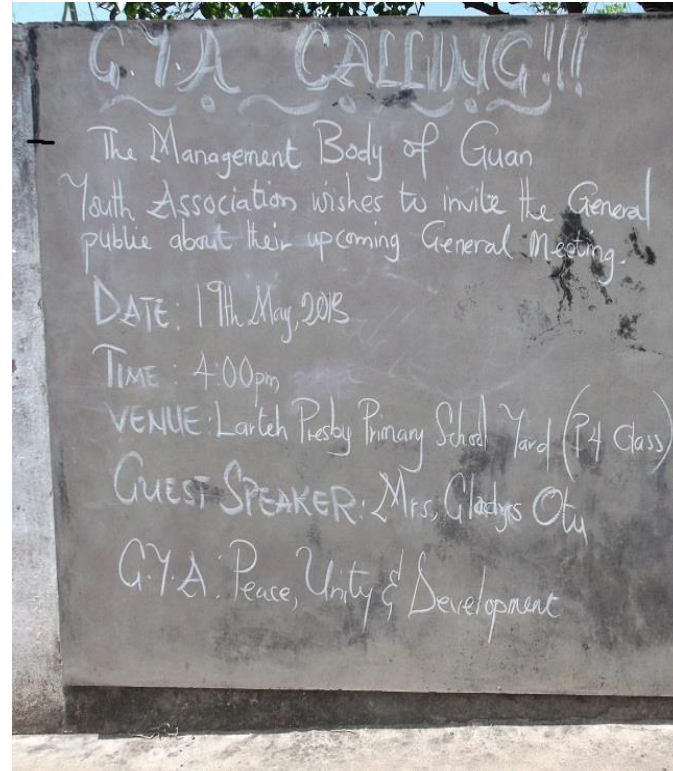 G.Y.A CALLING!!!
The Management Body of Guan
Youth Association wishes to invite the General
public about their upcoming General Meeting.
DATE: 19th May, 2013
TIME: 4:00pm
VENUE: Larteh Presby Primary School Yard (P4 Class)
GUEST SPEAKER: Mrs, Gladys Otu
G.Y.A: Peace, Unity & Development